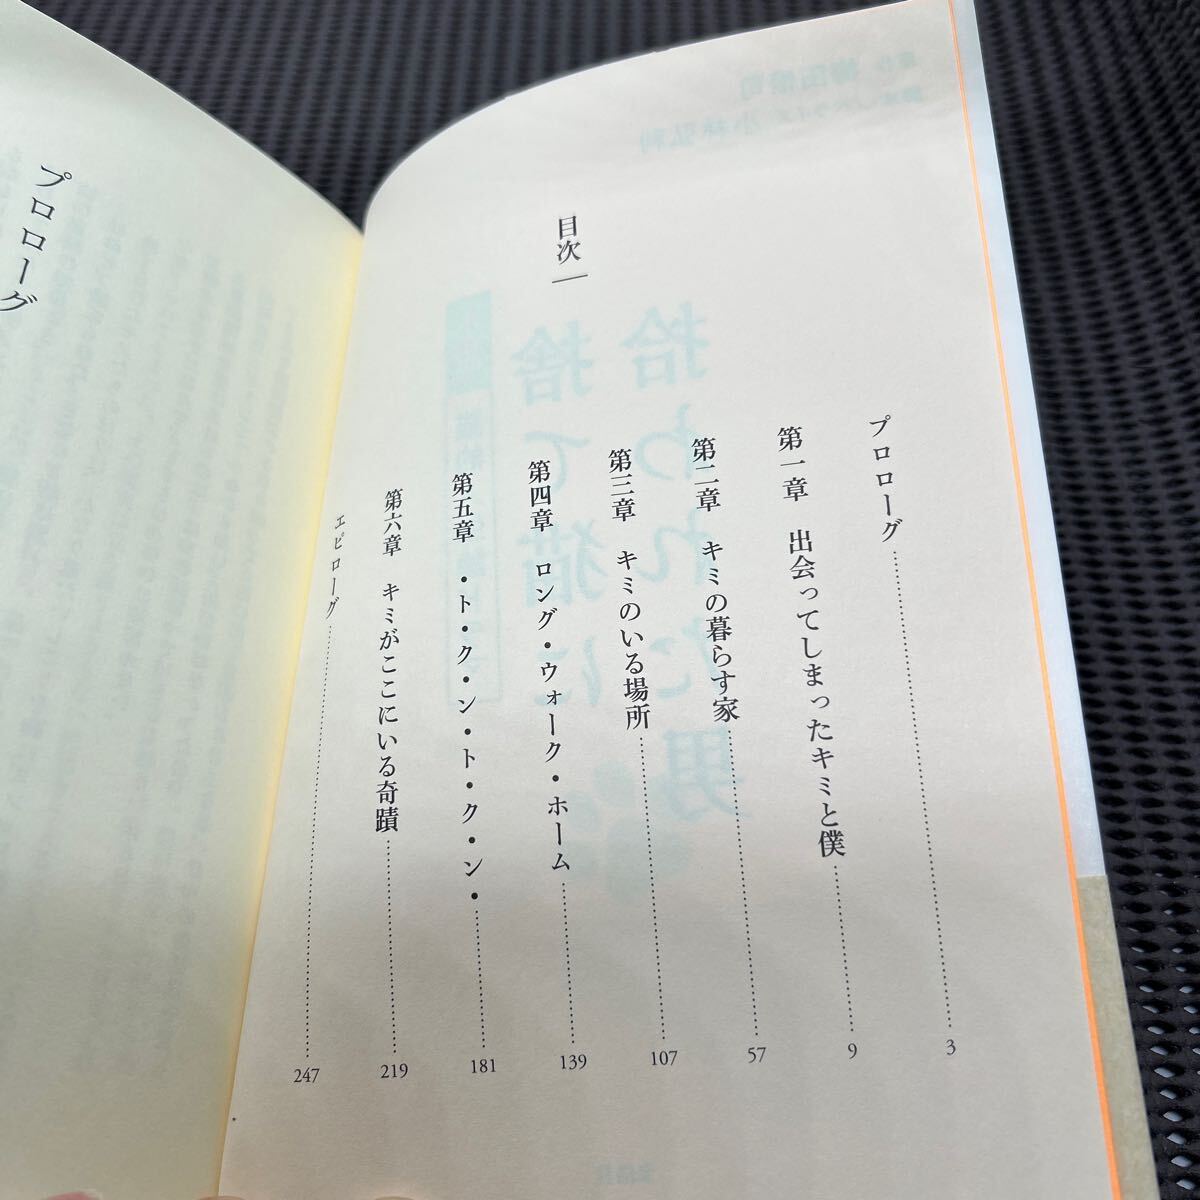 目次
プロローグ 3
第一章 出会ってしまったキミと僕 9
第二章 キミの暮らす家 57
第三章 キミのいる場所 107
第四章 ロング・ウォーク・ホーム 139
第五章 ・ト・ク・ン・ト・ク・ン・ 181
第六章 キミがここにいる奇蹟 219
エピローグ 247
プロローグ
拾われた男
捨て猫に
小林弘利